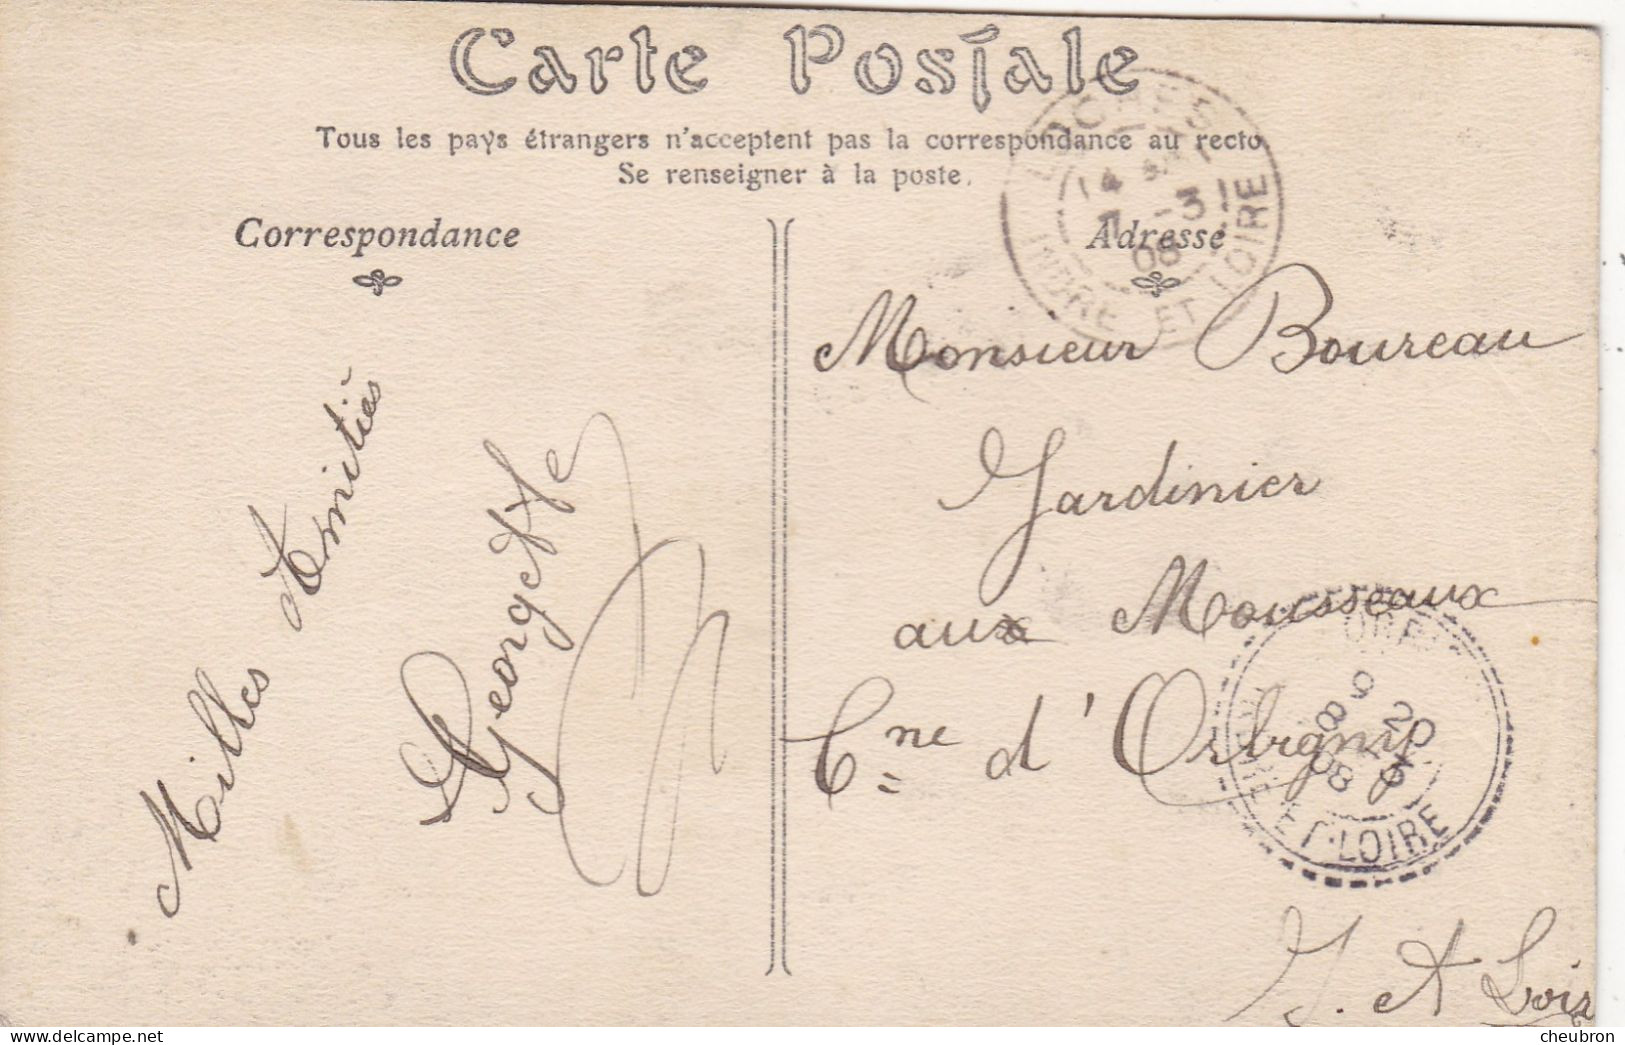 Carte Postale
Tous les pays étrangers n'acceptent pas la correspondance au recto.
Se renseigner à la poste.
Correspondance
Adresse
LOCHES
14
7 -3
08
INDRE ET LOIRE
Milles Amitiés
Georgette
Monsieur Boureau
Jardinier
aux Mousseaux
Cne d'Orbigny
I. et Loire
9 20
8 3
08
ET LOIRE
delcampe.net
cheubron